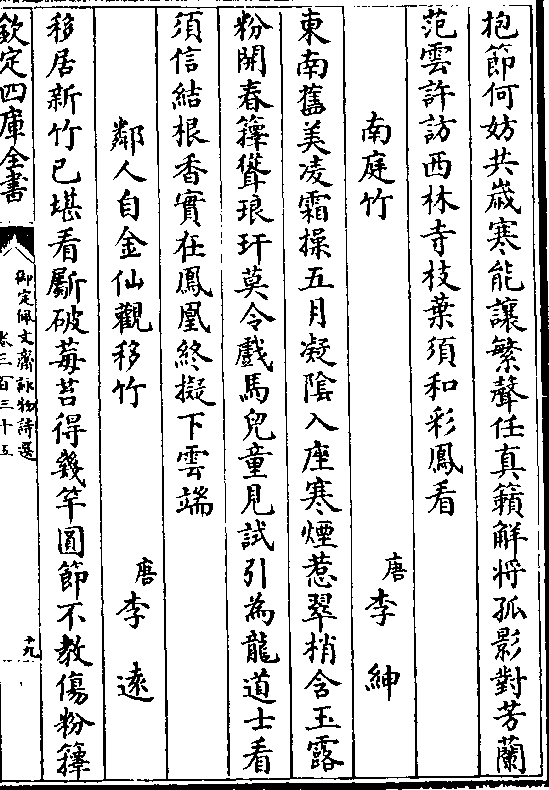 抱節何妨共歲寒能讓繁聲任真籟解將孤影對芳蘭
范雲許訪西林寺枝葉須和彩鳳看
南庭竹　唐李紳
東南舊美凌霜操五月凝陰入座寒煙惹翠梢含玉露
粉開春籜聳琅玕莫令戲馬兒童見試引為龍道士看
須信結根香實在鳳凰終擬下雲端
鄰人自金仙觀移竹　唐李遠
移居新竹已堪看斸破莓苔得幾竿圓節不教傷粉籜
欽定四庫全書
御定佩文齋詠物詩選
卷三百三十五
十九